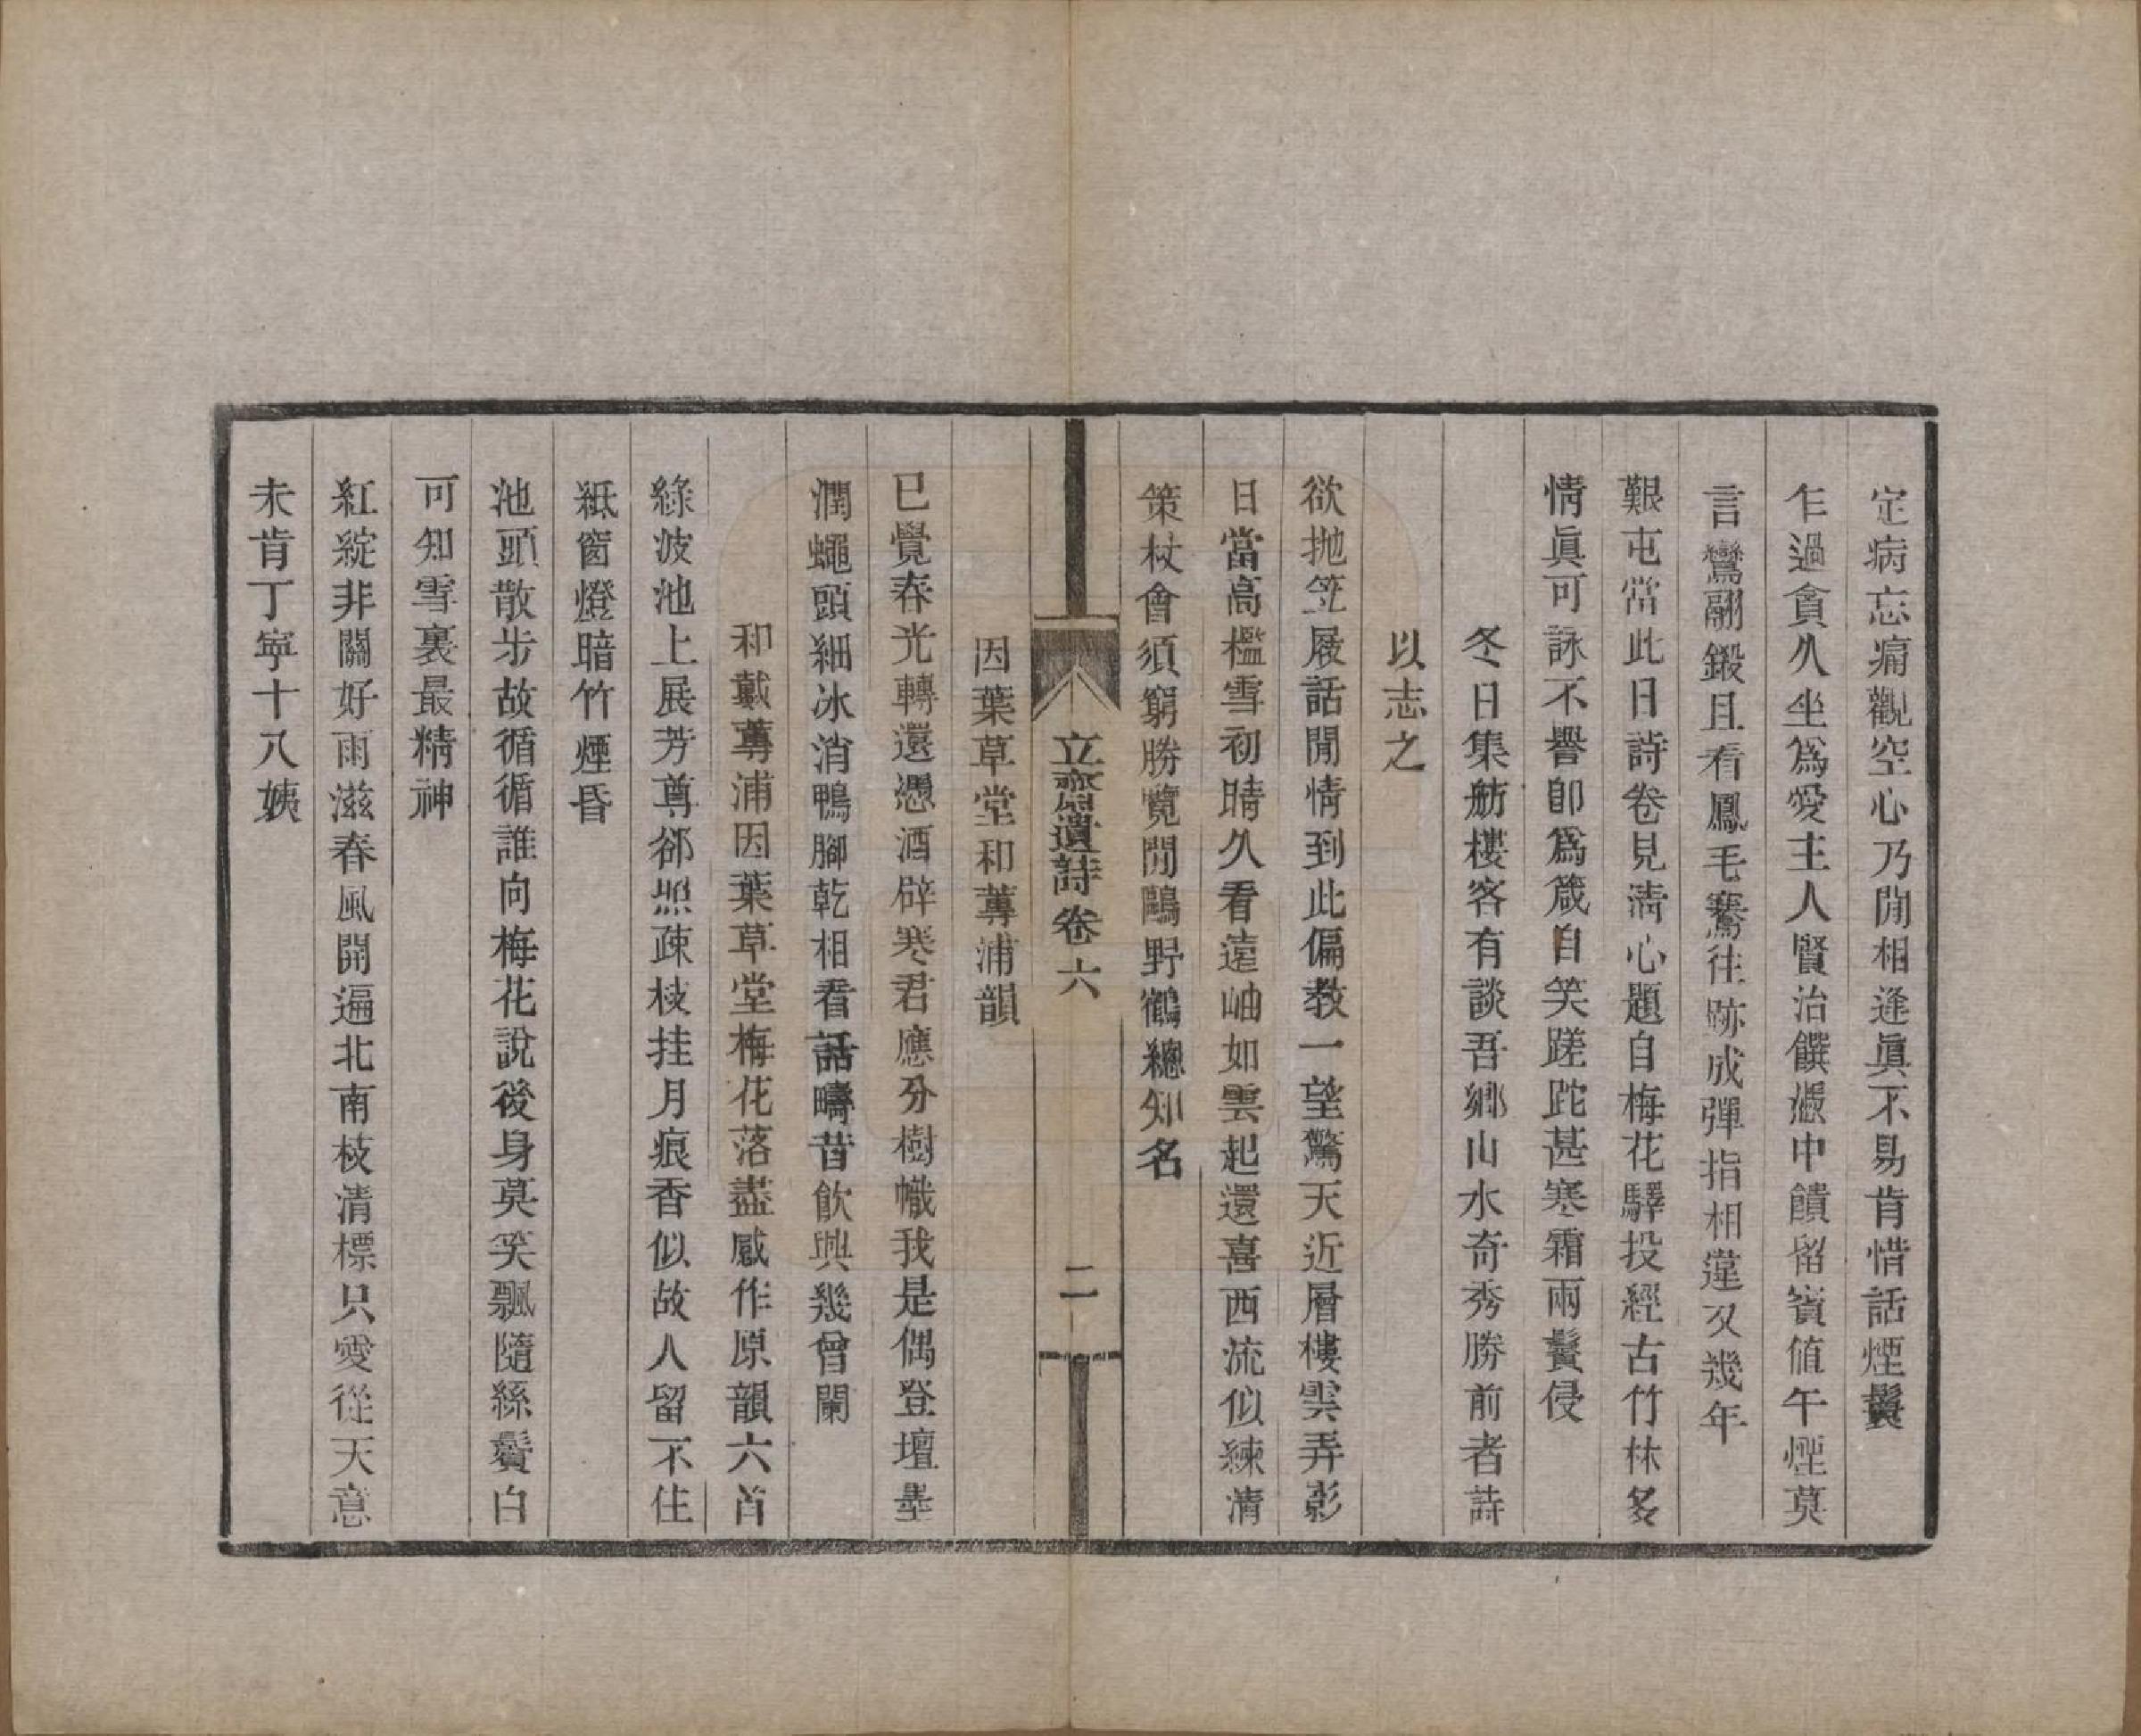 定病忘痛觀空心乃閒相逢眞不易肯惜話煙鬟
乍過貪久坐爲愛主人賢治饌憑中饋留賓值午煙莫
言鸞翮鎩且看鳳毛騫往跡成彈指相違又幾年
艱屯當此日詩卷見淸心題自梅花驛投經古竹林多
情眞可詠不譽卽爲箴自笑蹉跎甚寒霜兩鬢侵
冬日集舫樓客有談吾鄉山水奇秀勝前者詩
以志之
欲拋笠屐話閒情到此偏教一望驚天近層樓雲弄影
日當高檻雪初晴久看遠岫如雲起還喜西流似練淸
策杖會須窮勝覽閒鷗野鶴總知名
立齋遺詩卷六
二
因葉草堂和蓴浦韻
已覺春光轉還憑酒辟寒君應分樹幟我是偶登壇墨
潤蠅頭細冰消鴨腳乾相看話疇昔飮興幾曾闌
和戴蓴浦因葉草堂梅花落盡感作原韻六首
綠波池上展芳尊郤照疎枝挂月痕香似故人留不住
紙窗燈暗竹煙昏
池頭散步故循循誰向梅花說後身莫笑飄隨絲鬢白
可知雪裏最精神
紅綻非關好雨滋春風開遍北南枝清標只愛從天意
未肯丁寧十八姨